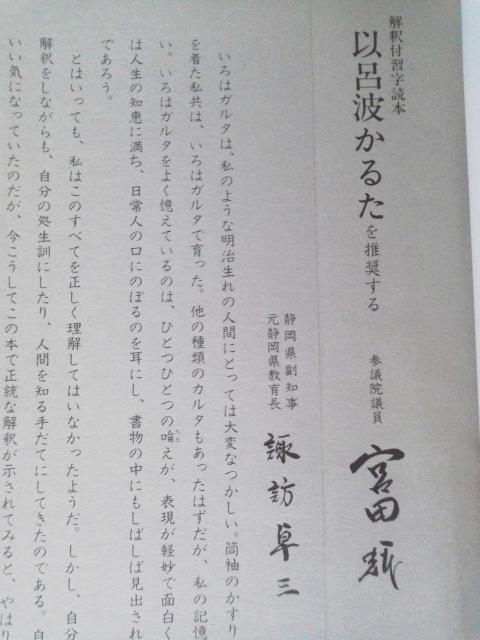 解釈付習字読本
以呂波かるたを推奨する
参議院議員
宮田
静岡県副知事
元静岡県教育長
諏訪卓三
いろはガルタは、私のような明治生れの人間にとっては大変なつかしい。筒袖のかすり
を着た私共は、いろはガルタで育った。他の種類のカルタもあったはずだが、私の記憶
い。いろはガルタをよく憶えているのは、ひとつひとつの喩えが、表現が軽妙で面白く
は人生の知恵に満ち、日常人の口にのぼるのを耳にし、書物の中にもしばしば見出され
であろう。
とはいっても、私はこのすべてを正しく理解してはいなかったようだ。しかし、自分
解釈をしながらも、自分の処生訓にしたり、人間を知る手だてにしてきたのである。自
いい気になっていたのだが、今こうしてこの本で正統な解釈が示されてみると、やはり